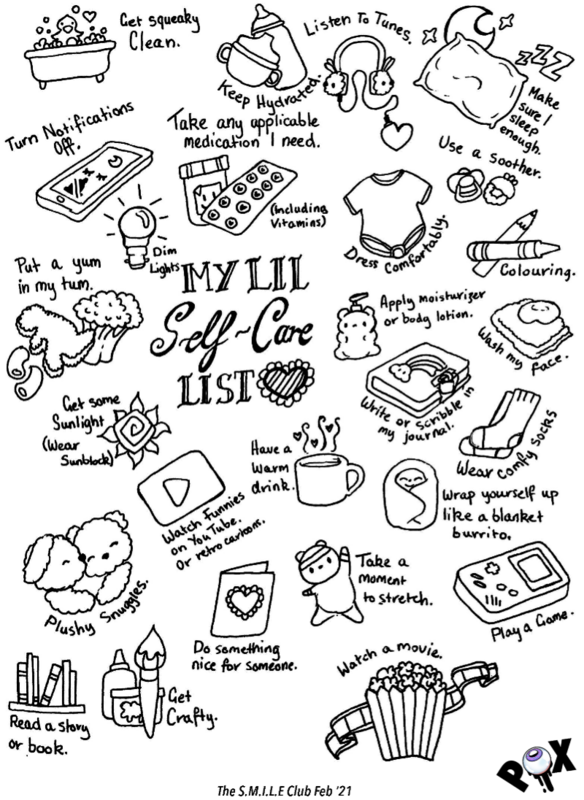 Get squeaky
Clean.
Keep Hydrated.
Listen To Tunes.
zzz
Make
sure I
sleep
enough.
Turn Notifications
Off.
Take any applicable
medication I need.
(Including
Vitamins)
Use a Soother.
Dim
Lights
Dress Comfortably.
Colouring.
Put a yum
in my tum.
MY LIL
Self-Care
LIST
Apply moisturizer
or body lotion.
Wash my face.
Write or scribble in
my journal.
Get some
Sunlight
(Wear
Sunblock)
Have a
warm
drink.
Wear comfy socks
Watch funnies
on YouTube.
Or retro cartoons.
Wrap yourself up
like a blanket
burrito.
Plushy Snuggles.
Take a
moment
to stretch.
Play a Game.
Do something
nice for someone.
Watch a movie.
Read a story
or book.
Get
Crafty.
POX
The S.M.I.L.E Club Feb '21